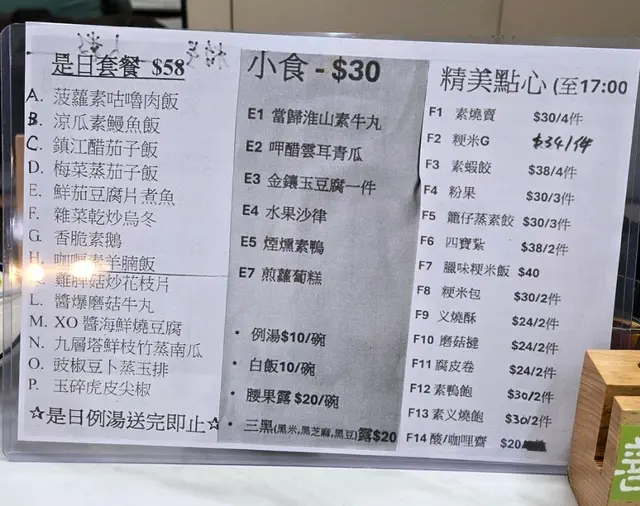 是日套餐 $58
A. 菠蘿素咕嚕肉飯
B. 涼瓜素鰻魚飯
C. 鎮江醋茄子飯
D. 梅菜蒸茄子飯
E. 鮮茄豆腐片煮魚
F. 雜菜乾炒烏冬
G. 香脆素鵝
H. 咖喱素羊腩飯
雞脾菇炒花枝片
L. 醬爆磨菇牛丸
M. XO 醬海鮮燒豆腐
N. 九層塔鮮枝竹蒸南瓜
O. 豉椒豆卜蒸玉排
P. 玉碎虎皮尖椒
☆是日例湯送完即止☆
小食 - $30
E1 當歸淮山素牛丸
E2 呷醋雲耳青瓜
E3 金鑲玉豆腐一件
E4 水果沙律
E5 煙燻素鴨
E7 煎蘿蔔糕
• 例湯$10/碗
• 白飯10/碗
• 腰果露 $20/碗
• 三黑(黑米,黑芝麻,黑豆)露$20
精美點心 (至17:00
F1 素燒賣 $30/4件
F2 粳米G $34/1件
F3 素蝦餃 $38/4件
F4 粉果 $30/3件
F5 籠仔蒸素餃 $30/3件
F6 四寶紮 $38/2件
F7 臘味粳米飯 $40
F8 粳米包 $30/2件
F9 义燒酥 $24/2件
F10 磨菇撻 $24/2件
F11 腐皮卷 $24/2件
F12 素鴨飽 $30/2件
F13 素义燒飽 $30/2件
F14 酸/咖哩齋 $20